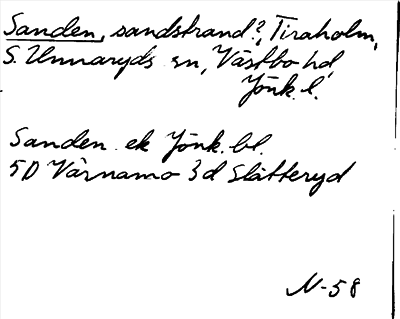 Sanden, sandstrand?, Tiraholm,
S. Unnaryds sn, Västbo hd,
Jönk. l.
Sanden ek Jönk. bl.
5D Värnamo 3d Slätteryd
N-58